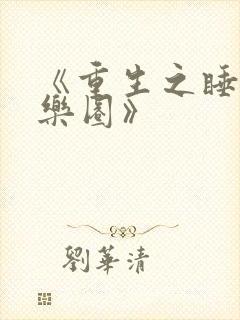 《重生之睡
樂園》
劉華清